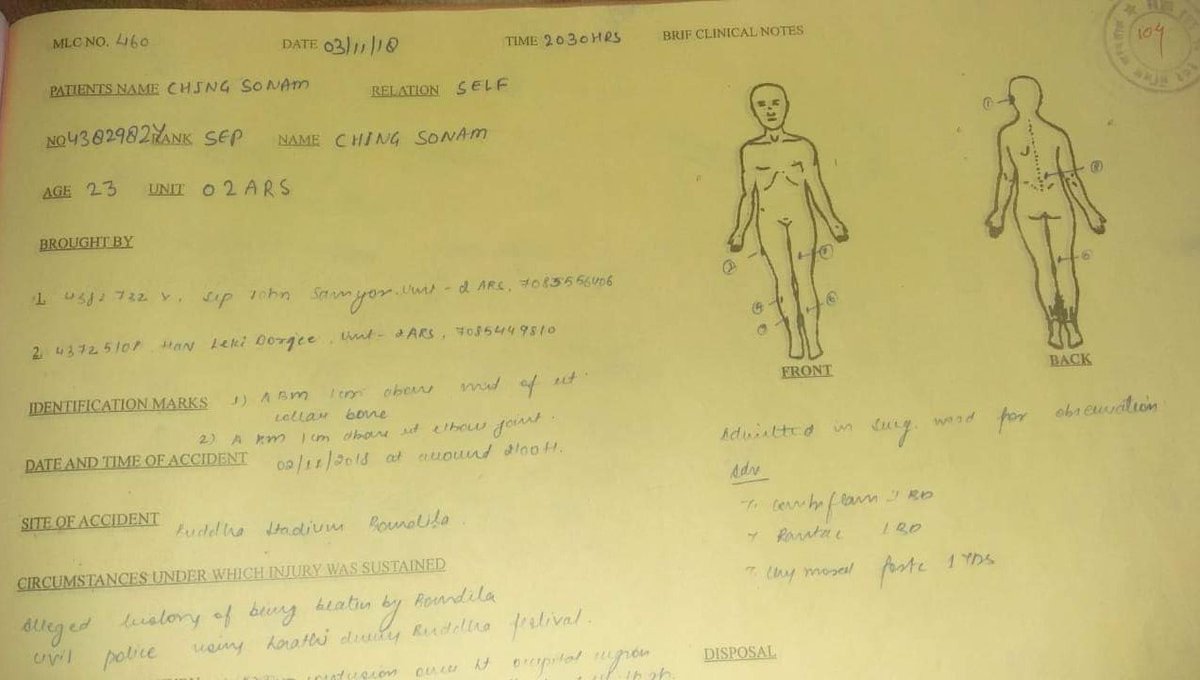 MLC NO. 460 DATE 03/11/18 TIME 2030 HRS BRIF CLINICAL NOTES
104
PATIENTS NAME CHING SONAM RELATION SELF
NO 4382982Y RANK SEP NAME CHING SONAM
AGE 23 UNIT 02 ARS
BROUGHT BY
1. Sep John Unit - 2 ARS, 7085556406
2. Hav Leki Dorjee, Unit - 2 ARS, 7085449810
FRONT BACK
IDENTIFICATION MARKS 1) A BM 1cm above mid of
collar bone
2) A BM 1cm above elbow joint.
DATE AND TIME OF ACCIDENT 02/11/2018 at around 2100H.
SITE OF ACCIDENT Buddha Stadium Bomdila.
CIRCUMSTANCES UNDER WHICH INJURY WAS SUSTAINED
Alleged history of being beaten by Bomdila
civil police using laathi during Buddha festival.
contusion over occipital region
Admitted in surg. ward for observation
Adv
1 BD
Rantac 1 BD
1 TDS
DISPOSAL